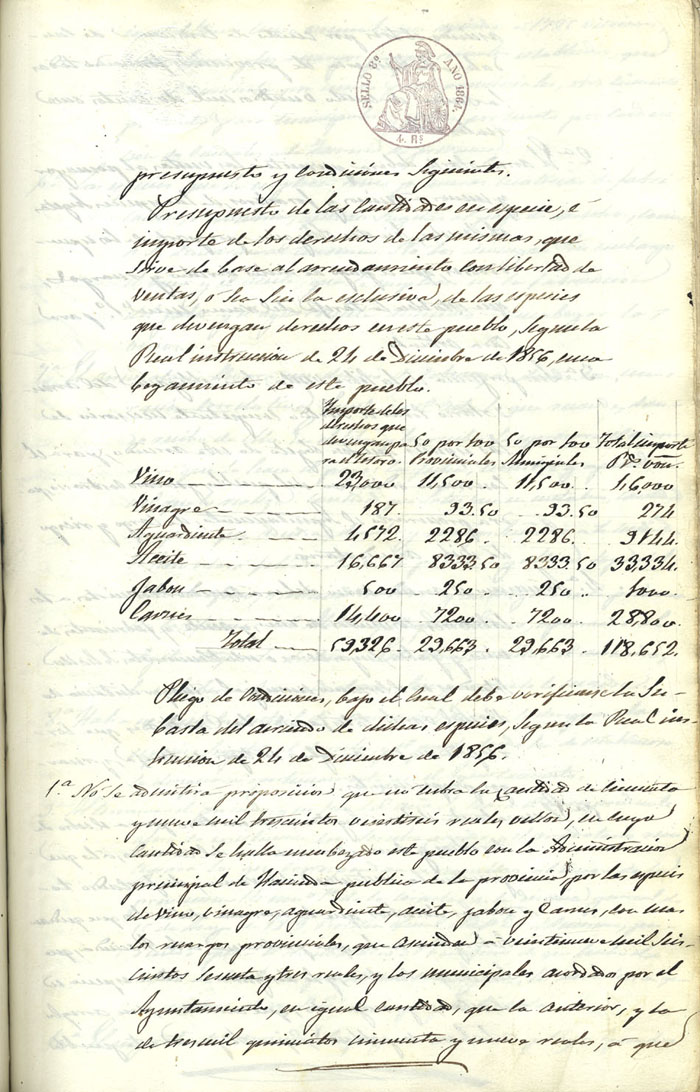 SELLO 8º AÑO 1863.
4 Rs
presupuesto y condiciones siguientes.
Presupuesto de las Cantidades en especie, é
importe de los derechos de las mismas, que
sirve de base al arrendamiento con libertad de
ventas, o sea sin la esclusiva, de las especies
que devengan derechos en este pueblo, segun la
Real instruccion de 24 de Diciembre de 1856, enca
bezamiento de este pueblo.
Importe de los derechos que devengan pa ra el tesoro. 50 por 100 Provinciales 50 por 100 Municipales Total importe Rs. von.
Vino 23,000 11,500 11,500 46,000
Vinagre 187 93.50 93.50 274
Aguardiente 4572 2286 2286 9144
Aceite 16,667 8333.50 8333.50 33,334
Jabon 500 250 250 1000
Carnes 14,400 7200 7200 28,800
Total 59,326 29,663 29,663 118,652
Pliego de Condiciones, bajo el cual debe verificarse la Su-
basta del arriendo de dichas especies, segun la Real ins-
truccion de 24 de Diciembre de 1856.
1.ª No se admitira proposicion que no cubra la Cantidad de Cincuenta
y nueve mil trescientos veintiseis reales, vellon, en cuya
cantidad se halla encabezado este pueblo con la Administracion
principal de Hacienda publica de la provincia, por las especies
de vino, vinagre, aguardiente, aceite, jabon y Carnes, con mas
los recargos provinciales, que asciende a veintinueve mil seis-
cientos sesenta y tres reales, y los municipales acordados por el
Ayuntamiento, en igual cantidad, que la anterior, y la
de tres mil quinientos cincuenta y nueve reales, á que